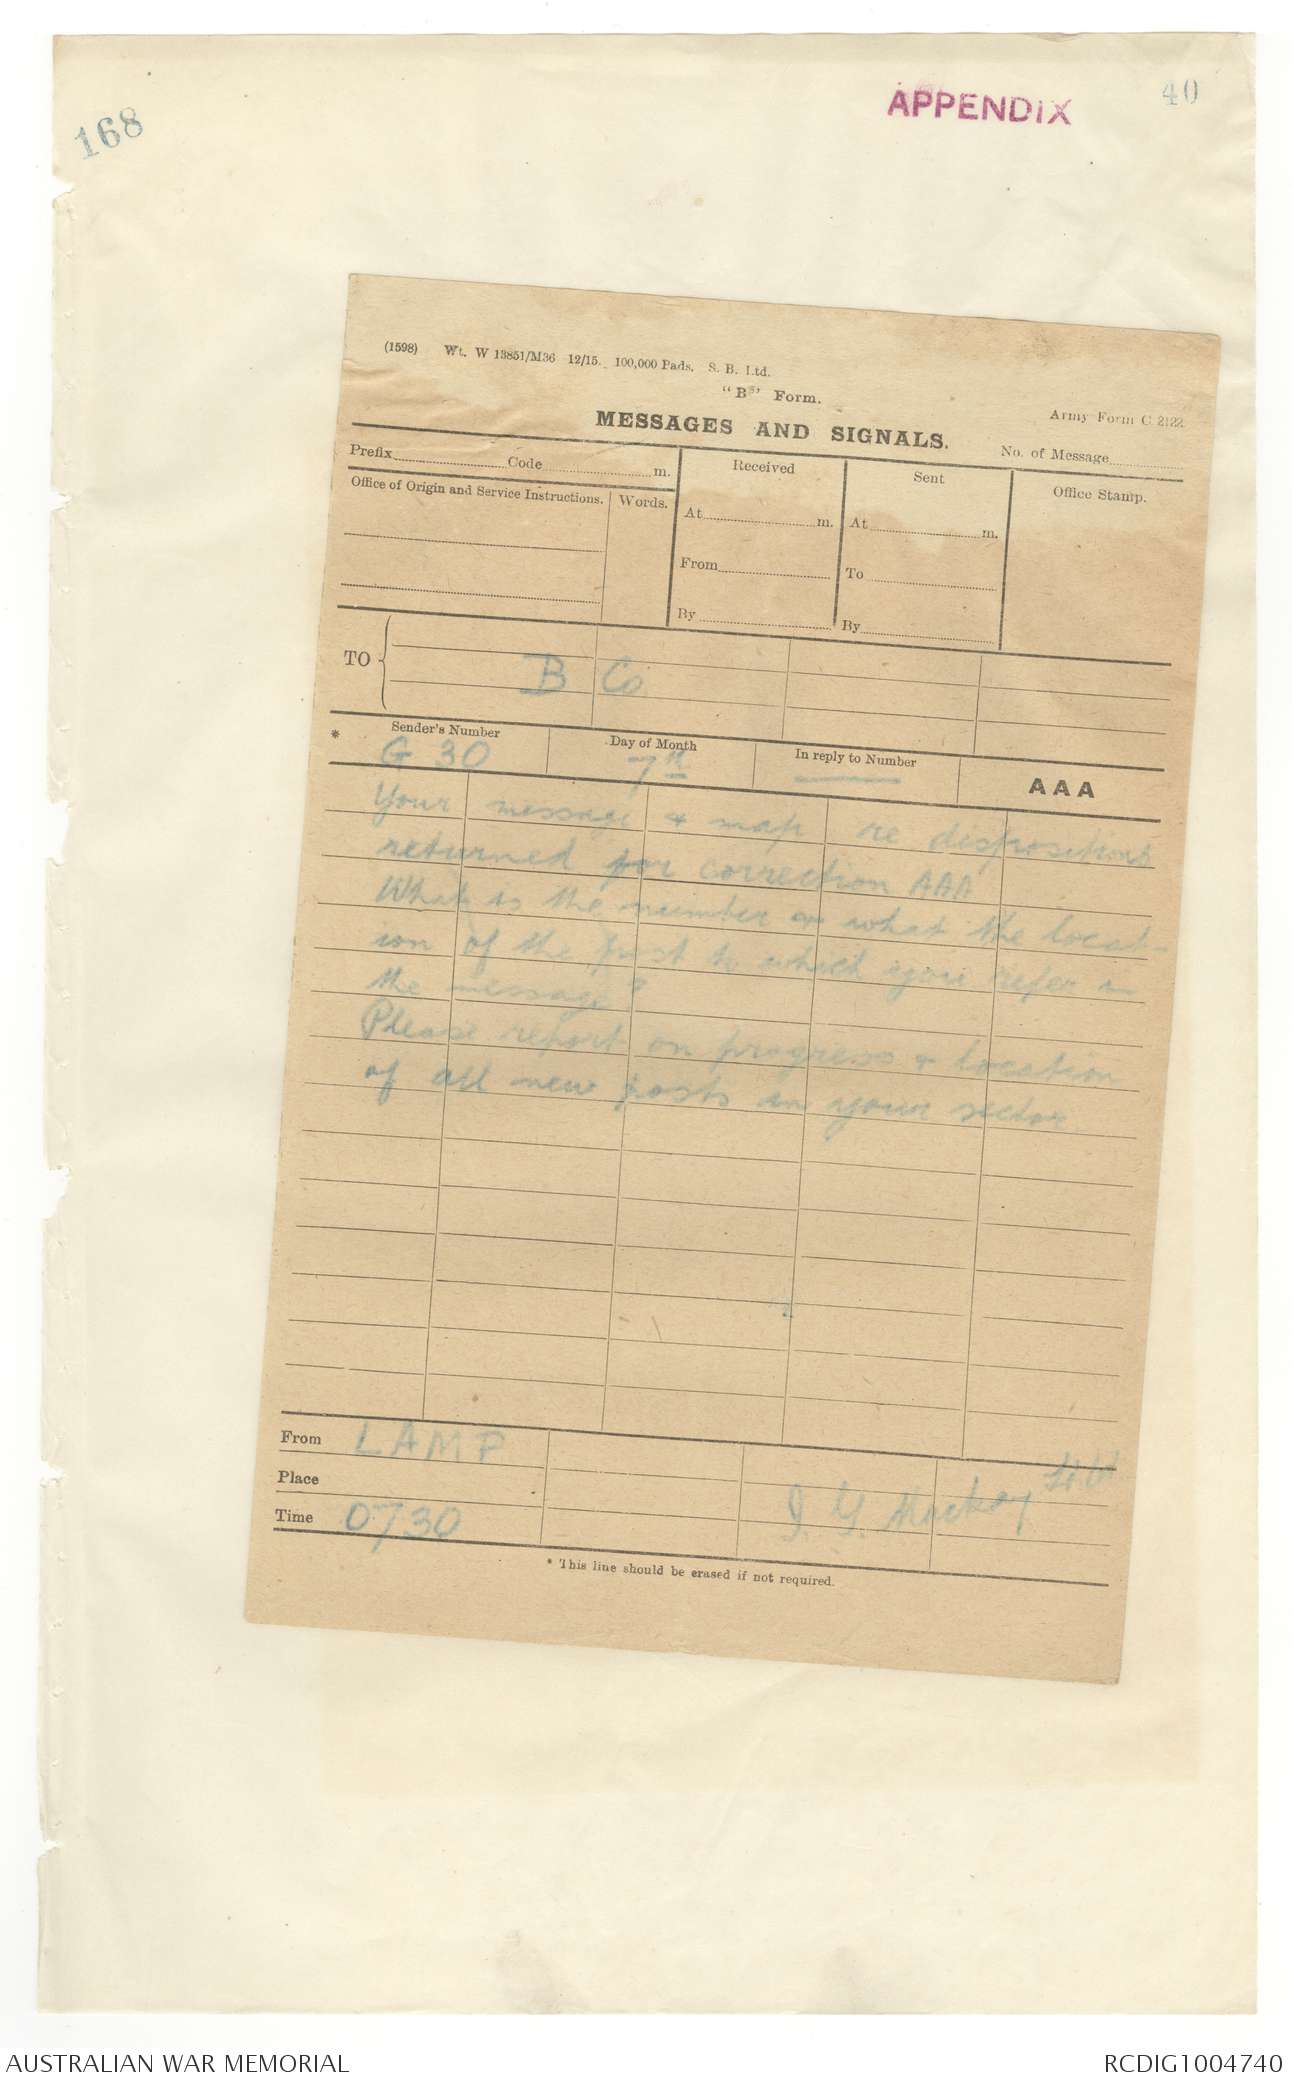 168
APPENDIX
40
(1598) Wt. W 13851/M36 12/15. 100,000 Pads. S. B. Ltd.
"B" Form.
Army Form C 2122
MESSAGES AND SIGNALS.
No. of Message
Prefix Code m.
Received
Sent
Office Stamp.
Office of Origin and Service Instructions.
Words.
At m.
At m.
From
To
By
By
TO
B Co
* Sender's Number
Day of Month
In reply to Number
AAA
G 30
7th
Your message & map re dispositions
returned for correction AAA
What is the number or what the locat-
ion of the post to which you refer in
the message?
Please report on progress & location
of all new posts in your sector
From LAMP
Place
Time 0730
I. G. Mackay
* This line should be erased if not required.
AUSTRALIAN WAR MEMORIAL
RCDIG1004740